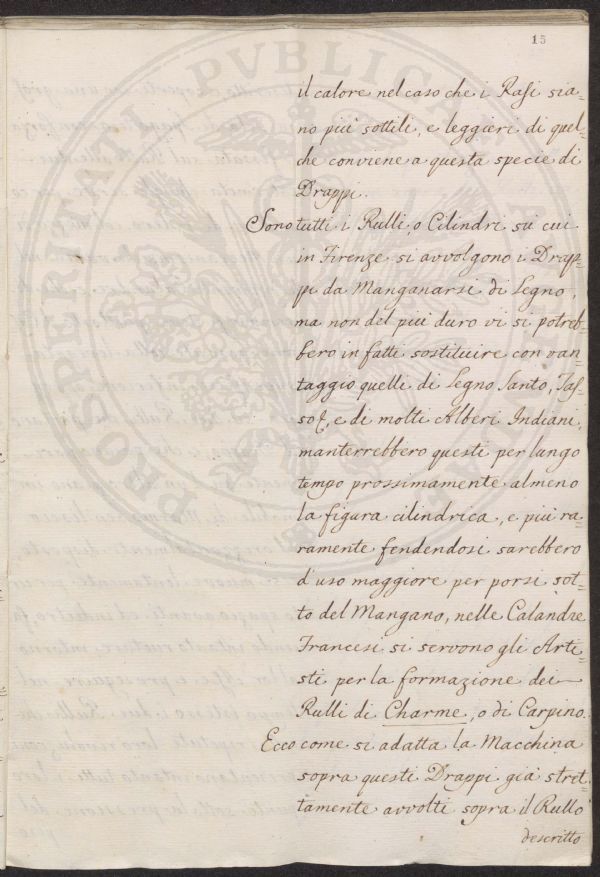 15
il calore nel caso che i Rasi sia-
no più sottili, e leggieri di quel
che conviene a questa specie di
Drappi.
Sono tutti i Rulli, o Cilindri su cui
in Firenze si avvolgono i Drap-
pi da Manganarsi di Legno,
ma non del più duro vi si potreb-
bero in fatti sostituire con van-
taggio quelle di Legno Santo, Tas-
so, e di molti Alberi Indiani,
manterrebbero questi per lungo
tempo prossimamente almeno
la figura cilindrica, e più ra-
ramente fendendosi sarebbero
d'uso maggiore per porsi sot-
to del Mangano, nelle Calandre
Francesi si servono gli Arti-
sti per la formazione dei
Rulli di Charme, o di Carpino.
Ecco come si adatta la Macchina
sopra questi Drappi già stret-
tamente avvolti sopra il Rullo
descritto
PROSPERITATI PVBLICAE